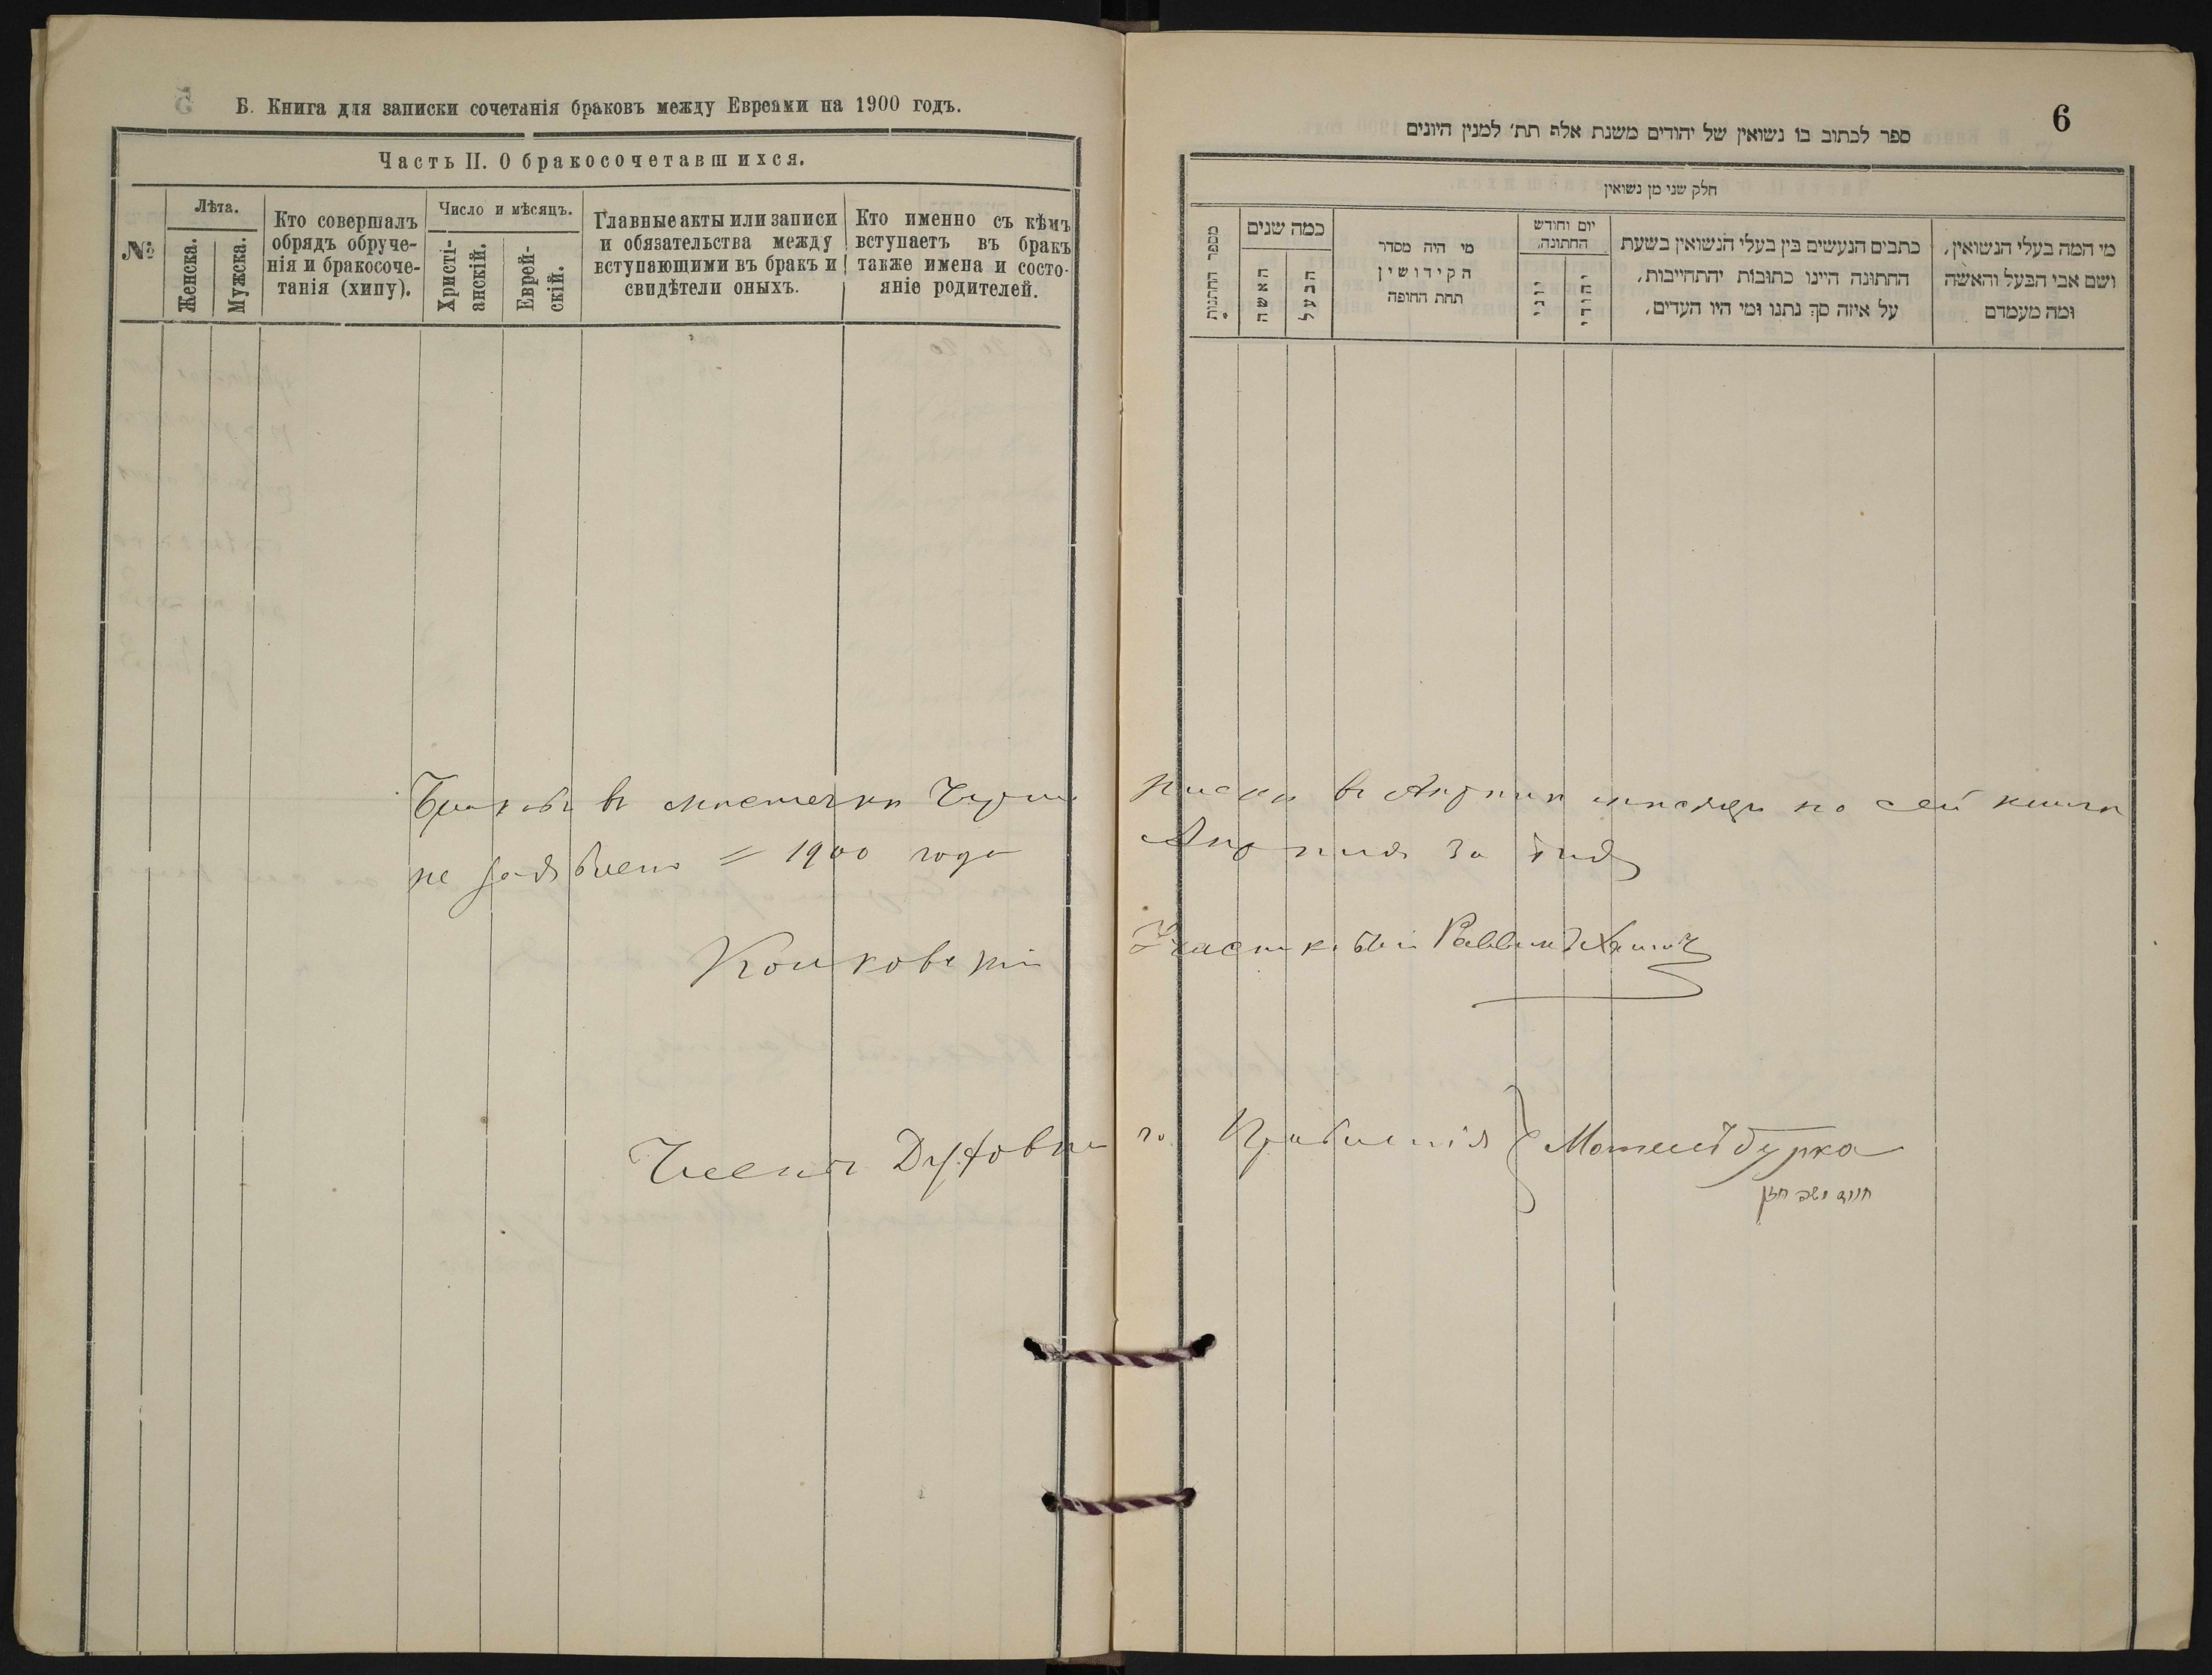 Б. Книга для записки сочетанія браковъ между Евреями на 1900 годъ.
Часть II. О бракосочетавшихся.
№
Лѣта.
Женска.
Мужска.
Кто совершалъ
обрядъ обруче-
нія и бракосоче-
танія (хипу).
Число и мѣсяцъ.
Христі-
анскій.
Еврей-
скій.
Главные акты или записи
и обязательства между
вступающими въ бракъ и
свидѣтели оныхъ.
Кто именно съ кѣмъ
вступаетъ въ бракъ
также имена и состо-
яніе родителей.
6
ספר לכתוב בו נשואין של יהודים משנת אלף תת׳ למנין היונים
חלק שני מן נשואין
מספר החתונות
כמה שנים
האשה
הבעל
מי היה מסדר
הקידושין
תחת החופה
יום וחודש
החתונה,
יוני
יהודי
כתבים הנעשים בין בעלי הנשואין בשעת
החתונה היינו כתובות יהתחייבות,
על איזה סך נתנו ומי היו העדים,
מי המה בעלי הנשואין,
ושם אבי הבעל והאשה
ומה מעמדם
Браковъ въ мѣстечкѣ въ Апрѣлѣ мѣсяцѣ по сей книгѣ
не заявлено = 1900 года Апрѣля 30 дня
Раввинъ
Членъ Духовнаго Правленія } Мотель Бурка